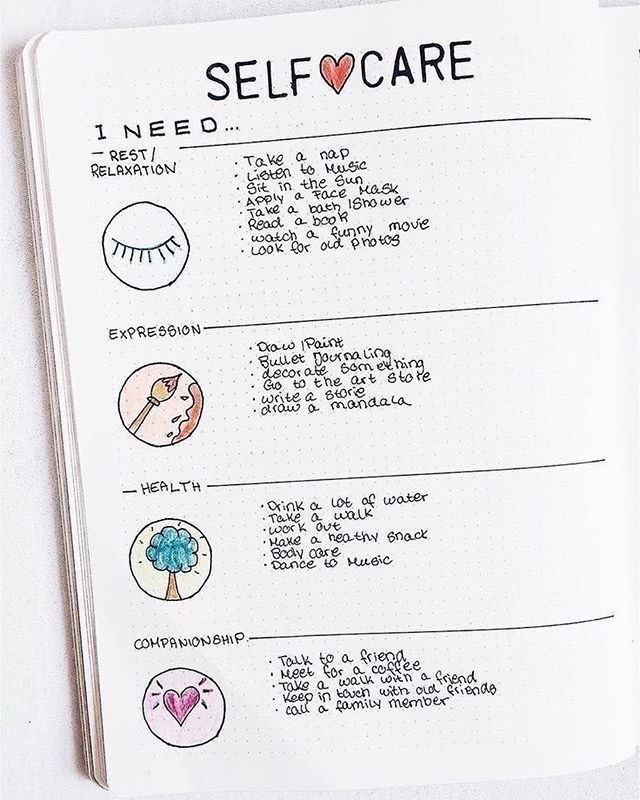 SELF CARE
I NEED...
REST/
RELAXATION
• Take a nap
• Listen to Music
• Sit in the Sun
• Apply a Face Mask
• Take a bath /Shower
• Read a book
• watch a funny movie
• Look for old photos
EXPRESSION
• Draw /Paint
• Bullet Journaling
• decorate something
• Go to the art Store
• write a storie
• draw a mandala
HEALTH
• Drink a lot of water
• Take a walk
• work out
• Make a heathy snack
• Body care
• Dance to Music
COMPANIONSHIP
• Talk to a friend
• Meet for a coffee
• Take a walk with a friend
• Keep in touch with old friends
• call a family member